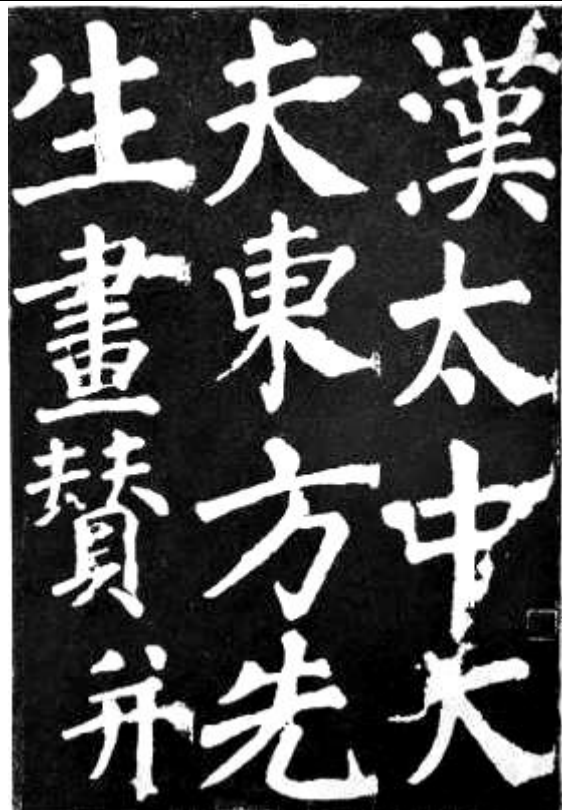 漢太中大
夫東方先
生畫賛并